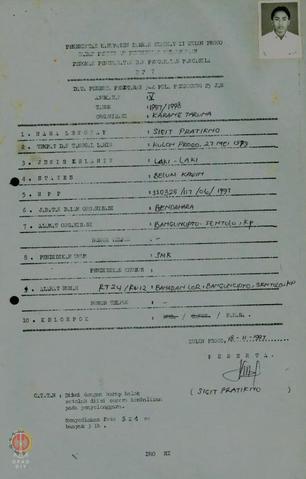 PEMERINTAH KABUPATEN DAERAH TINGKAT II KULON PROGO
PEDOMAN PENGHAYATAN DAN PENGAMALAN PANCASILA
BP 7
DATA PESERTA PENATARAN POLA PENDUKUNG 25 JAM
ANGKATAN : IV
TAHUN : 1997/1998
ORGANISASI : KARANG TARUNA
1. NAMA LENGKAP : SIGIT PRATIKNO
2. TEMPAT DAN TANGGAL LAHIR : KULON PROGO, 27 MEI 1979
3. JENIS KELAMIN : LAKI - LAKI
4. STATUS : BELUM KAWIN
5. NPP : 310325/117/06/1997
6. JABATAN DALAM ORGANISASI : BENDAHARA
7. ALAMAT ORGANISASI : BANGUNCIPTO, SENTOLO, KP
NOMOR TELPON : -
8. PENDIDIKAN UMUM : SMK
PENDIDIKAN KHUSUS : -
9. ALAMAT RUMAH : RT 24 / RW 12, LOR, BANGUNCIPTO, SENTOLO, KP
NOMOR TELPON : -
10. KELOMPOK :
KULON PROGO, 18 - 11 - 1997
P E S E R T A
( SIGIT PRATIKNO )
CATATAN : Diisi dengan huruf balok
setelah diisi segera kembalikan
pada penyelenggara.
Menyediakan Foto 3 X 4 cm
banyak 3 lb.
DPAD
DIY